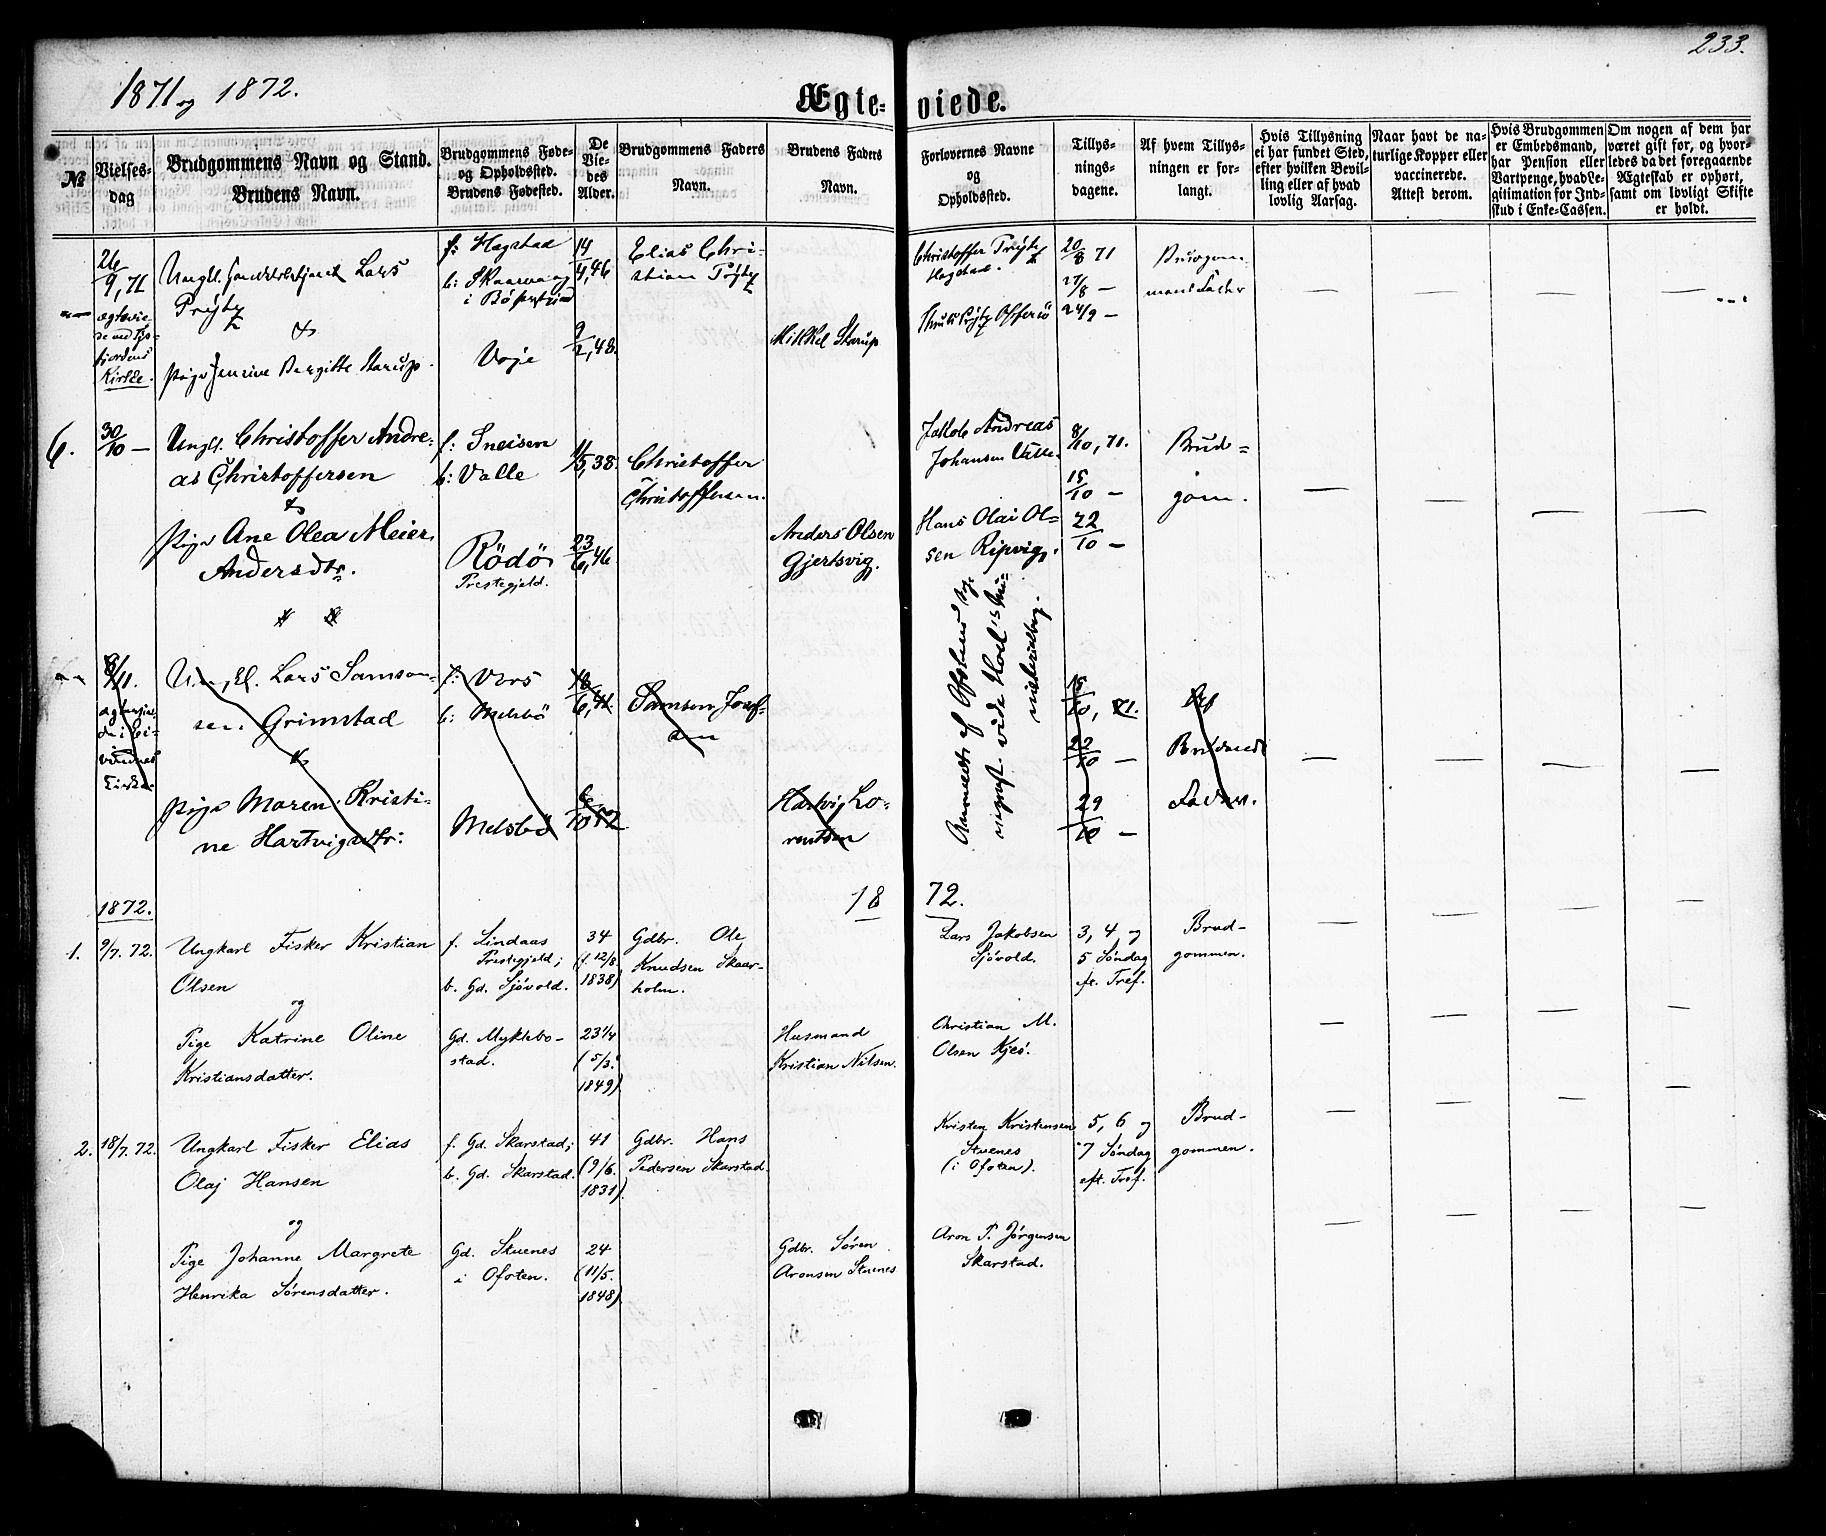 1871 og 1872.
Ægte-
viede.
233.
№
Vielses-
dag
Brudgommens Navn og Stand.
Brudens Navn.
Brudgommens Føde-
og Opholdssted.
Brudens Fødested.
De
Vie-
des
Alder.
Brudgommens Faders
Navn.
Brudens Faders
Navn.
Forlovernes Navne
og
Opholdssted.
Tillys-
nings-
dagene.
Af hvem Tillys-
ningen er for-
langt.
Hvis Tillysning
ei har fundet Sted,
efter hvilken Bevil-
ling eller af hvad
lovlig Aarsag.
Naar havt de na-
turlige Kopper eller
vaccinerede.
Attest derom.
Hvis Brudgommen
er Embedsmand,
har Pension eller
Vartpenge, hvad Le-
gitimation for Ind-
skud i Enke-Cassen.
Om nogen af dem har
været gift før, og hvor-
ledes da det foregaaende
Ægteskab er ophørt,
samt om lovligt Skifte
er holdt.
26/9, 71
Lars
&
Pige Bergitte Starup.
Kirke.
f: Hagstad
b:
Veje
14/4, 46
9/2, 48.
Elias Chri-
stian
Mikkel Starup
Christoffer
Hagstad.
20/8 71
27/8 —
24/9 —
6.
30/10 —
Ungk. Christoffer Andre-
as Christoffersen
&
Pige Ane Olea Meier
Andersdtr.
f: Sneisen
b: Valle
Rödö
Prestegjeld.
11/5, 38.
23/6, 46
Christoffer
Christoffersen.
Anders Olsen
Gjertsvig.
Jakob Andreas
Johansen Valle.
Hans Olai Ol-
sen Ripvig.
8/10, 71.
15/10 —
22/10 —
Brud-
gom.
Lars Samson-
sen Grimstad
&
Pige Maren Kristi-
ne Hartvigsdtr:
f: Vors
b: Melsbö
Melsbö
Samson
Hartvig Lo-
rentsen
15/10, 71.
22/10 —
29/10 —
Af
Brudens
Fader.
1872.
18
72.
1.
9/7. 72.
Ungkarl Fisker Kristian
Olsen
og
Pige Katrine Oline
Kristiansdatter.
f. Lindaas
Prestegjeld;
b. Gd. Sjövold.
Gd. Myklebo-
stad.
34
(f. 12/8
1838)
23 1/4
(5/3.
1849)
Gdbr. Ole
Knudsen Skaar-
holm.
Husmand
Kristian Nilsen.
Lars Jakobsen
Sjövold.
Christian M.
Olsen Kjeö.
3, 4 og
5 Søndag
ft. Tref.
Brud-
gommen.
2.
18/7. 72.
Ungkarl Fisker Elias
Olaj Hansen
og
Pige Johanne Margrete
Henrika Sørensdatter.
f. Gd. Skarstad;
b. Gd. Skarstad.
Gd. Stuenes
i Ofoten.
41
(9/6.
1831)
24
(11/5.
1848)
Gdbr. Hans
Pedersen Skarstad.
Gdbr. Søren
Aronsen Stuenes
Kristen Kristensen
Stuenes
(i Ofoten).
Aron P. Jørgensen
Skarstad.
5, 6 og
7 Søndag
eft. Tref.
Brud-
gommen.